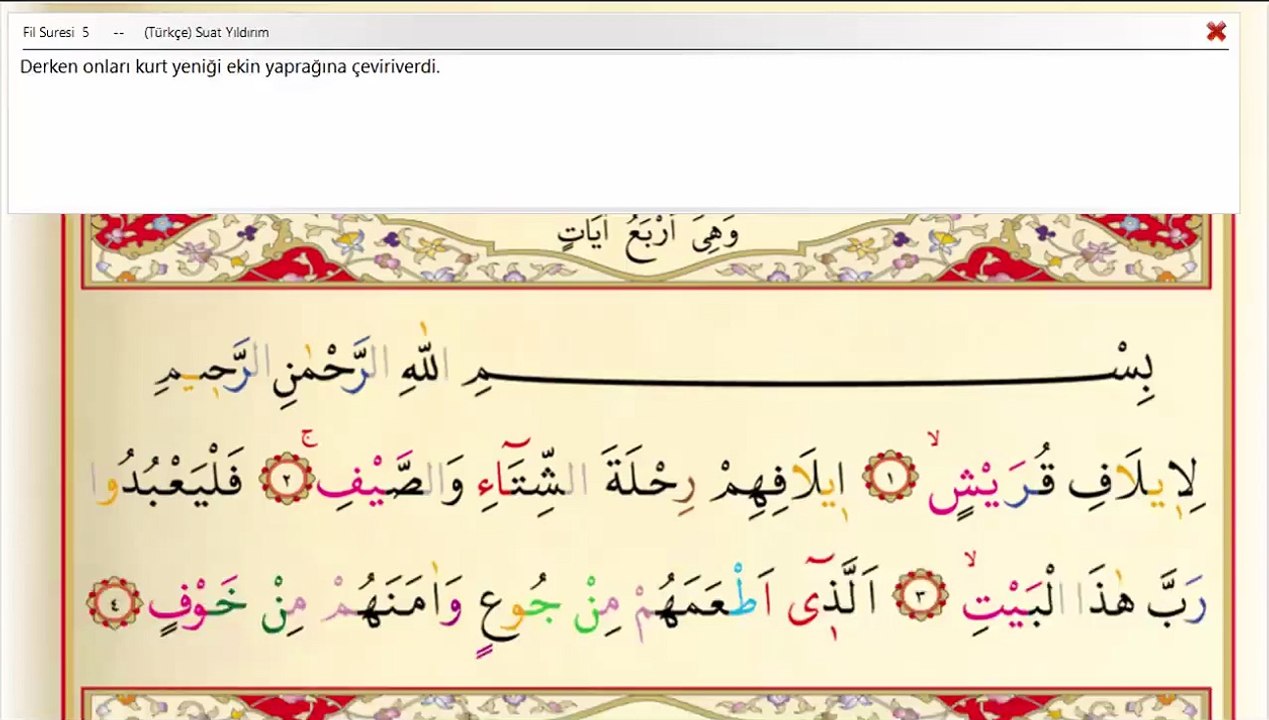 Fil Suresi 5 -- (Türkçe) Suat Yıldırım
Derken onları kurt yeniği ekin yaprağına çeviriverdi.
وَهِىَ اَرْبَعُ اٰيَاتٍ
بِسْمِ اللّٰهِ الرَّحْمٰنِ الرَّحٖيمِ
لِاٖيلَافِ قُرَيْشٍۙ ﴿١﴾ اٖيلَافِهِمْ رِحْلَةَ الشِّتَٓاءِ وَالصَّيْفِۚ ﴿٢﴾ فَلْيَعْبُدُوا
رَبَّ هٰذَا الْبَيْتِۙ ﴿٣﴾ اَلَّذٖٓى اَطْعَمَهُمْ مِنْ جُوعٍ وَاٰمَنَهُمْ مِنْ خَوْفٍ ﴿٤﴾